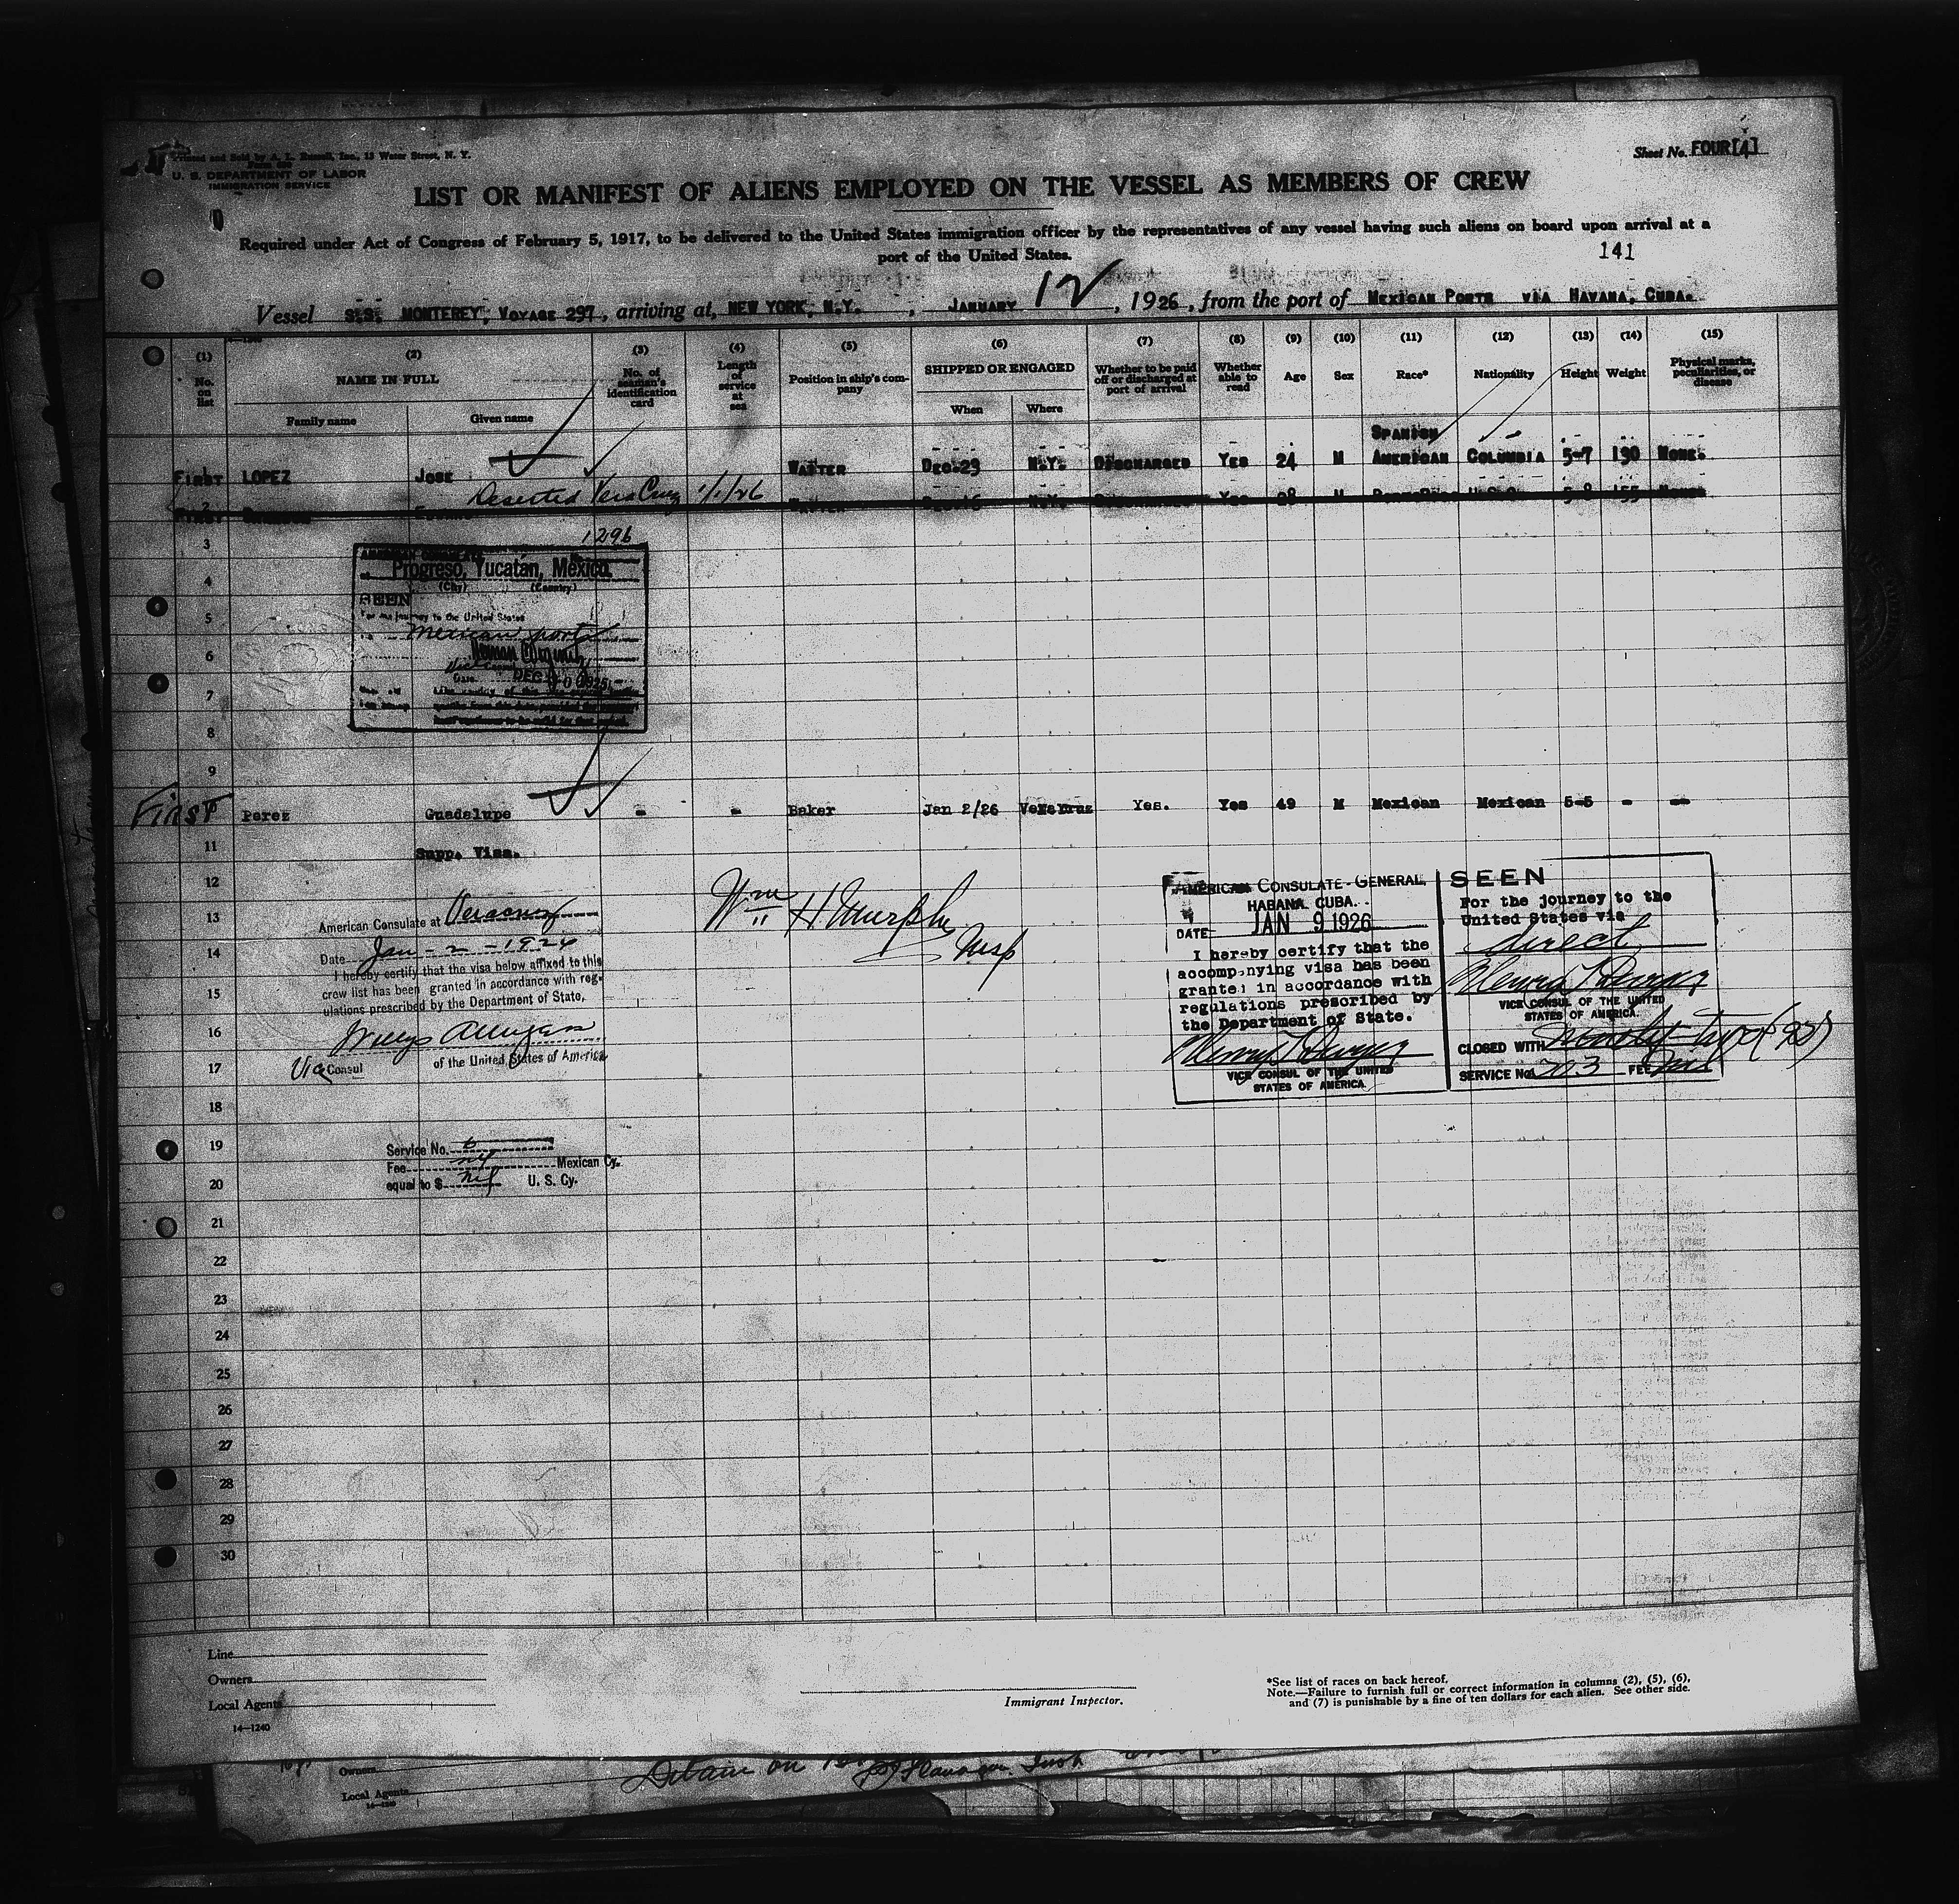 Printed and Sold by A. L. Russell, Inc., 15 Water Street, N. Y.
U. S. DEPARTMENT OF LABOR
IMMIGRATION SERVICE
Sheet No. FOUR[4]
LIST OR MANIFEST OF ALIENS EMPLOYED ON THE VESSEL AS MEMBERS OF CREW
Required under Act of Congress of February 5, 1917, to be delivered to the United States immigration officer by the representatives of any vessel having such aliens on board upon arrival at a
port of the United States.
141
Vessel S.S. MONTEREY, VOYAGE 297, arriving at, NEW YORK, N.Y. , JANUARY 12, 1926, from the port of MEXICAN PORTS VIA HAVANA, CUBA.
(1) (2) (3) (4) (5) (6) (7) (8) (9) (10) (11) (12) (13) (14) (15)
No. on list
NAME IN FULL
Family name
Given name
No. of seaman's identification card
Length of service at sea
Position in ship's company
SHIPPED OR ENGAGED
When
Where
Whether to be paid off or discharged at port of arrival
Whether able to read
Age
Sex
Race*
Nationality
Height
Weight
Physical marks, peculiarities, or disease
FIRST LOPEZ JOSE WAITER DEC-23 N.Y. DISCHARGED YES 24 M SPANISH AMERICAN COLUMBIA 5-7 130 NONE.
Deserted Vera Cruz 1/1/26
2
FIRST
3
1296
4
Progreso, Yucatán, Mexico.
(City) (Country)
SEEN
5
For the journey to the United States
Mexican ports
6
7
Date DEC
8
9
FIRST Perez Guadalupe - - Baker Jan 2/26 Vera Cruz Yes. Yes 49 M Mexican Mexican 5-5 - -
11
Supp. Visa.
12
13
American Consulate at Veracruz
14
Date Jan - 2 - 1926
I hereby certify that the visa below affixed to this
crew list has been granted in accordance with reg-
15
ulations prescribed by the Department of State,
16
17
Vice Consul of the United States of America
Wm H Murphy
Insp
AMERICAN CONSULATE-GENERAL,
HABANA CUBA.
DATE: JAN 9 1926
I hereby certify that the
accompanying visa has been
granted in accordance with
regulations prescribed by
the Department of State.
VICE CONSUL OF THE UNITED
STATES OF AMERICA
SEEN
For the journey to the
United States via
direct
VICE CONSUL OF THE UNITED
STATES OF AMERICA.
CLOSED WITH
SERVICE No. 203 FEE
18
19
Service No. 6
Fee Mexican Cy.
20
equal to $ Nil U. S. Cy.
21
22
23
24
25
26
27
28
29
30
Line
Owners
Local Agents
14—1240
Immigrant Inspector.
*See list of races on back hereof.
Note.—Failure to furnish full or correct information in columns (2), (5), (6),
and (7) is punishable by a fine of ten dollars for each alien. See other side.
Owners
Local Agents
Detain on